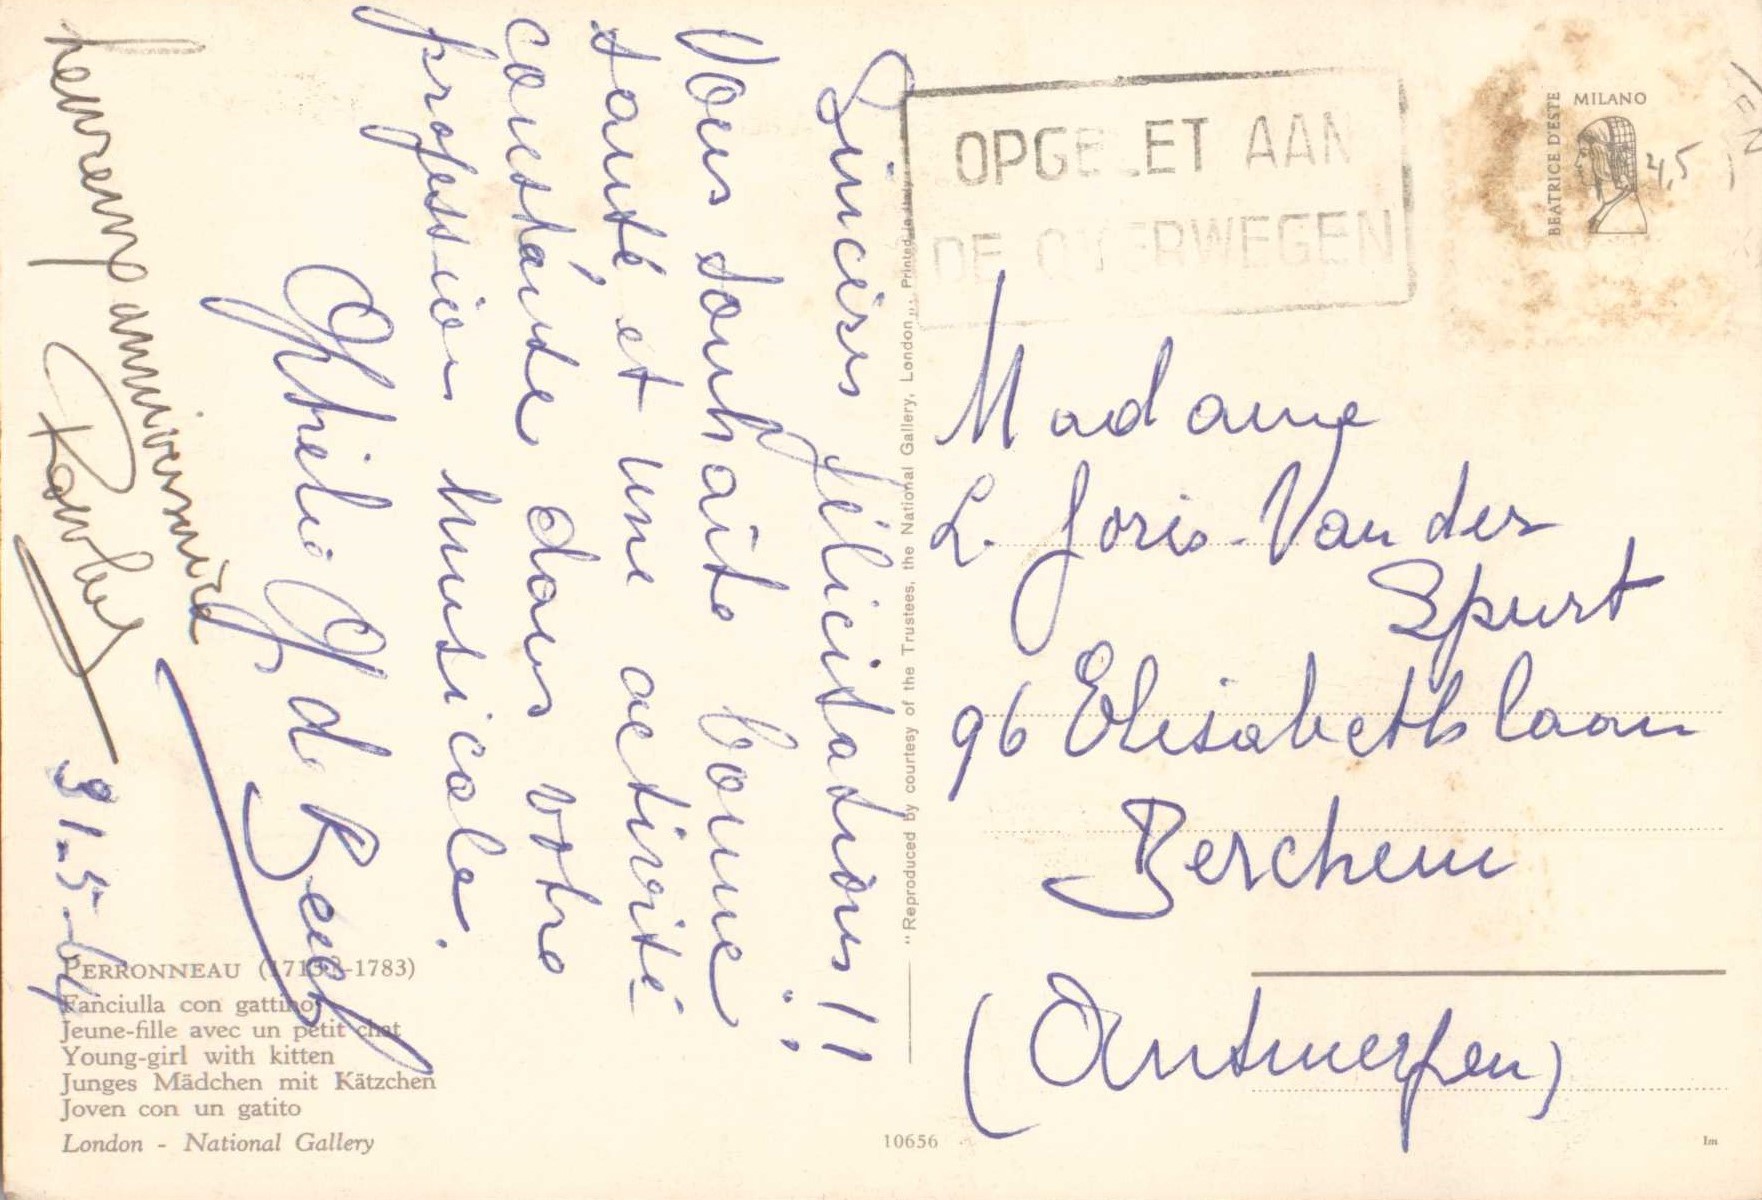 Sincères félicitations !!
Vous souhaite bonne
santé et une activité
constante dans votre
profession musicale.
Ophélie
d
heureux anniversaire
31-5-64
OPGELET AAN
DE OVERWEGEN
BEATRICE D'ESTE
MILANO
4,5
Madame
L. Joris-Van der
Spurt
96 Elisabethlaan
Berchem
(Antwerpen)
"Reproduced by courtesy of the Trustees, the National Gallery, London". Printed in Italy
PERRONNEAU (1715?-1783)
Fanciulla con gattino
Jeune-fille avec un petit chat
Young-girl with kitten
Junges Mädchen mit Kätzchen
Joven con un gatito
London - National Gallery
10656
Im